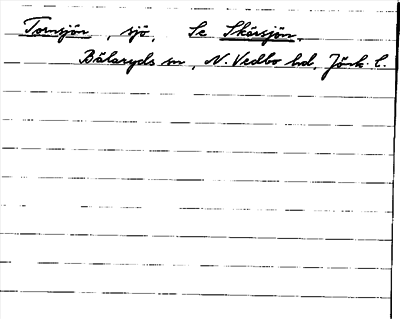 Tornsjön, sjö. Se Skärsjön.
Bälaryds sn, N. Vedbo hd, Jönk. l.